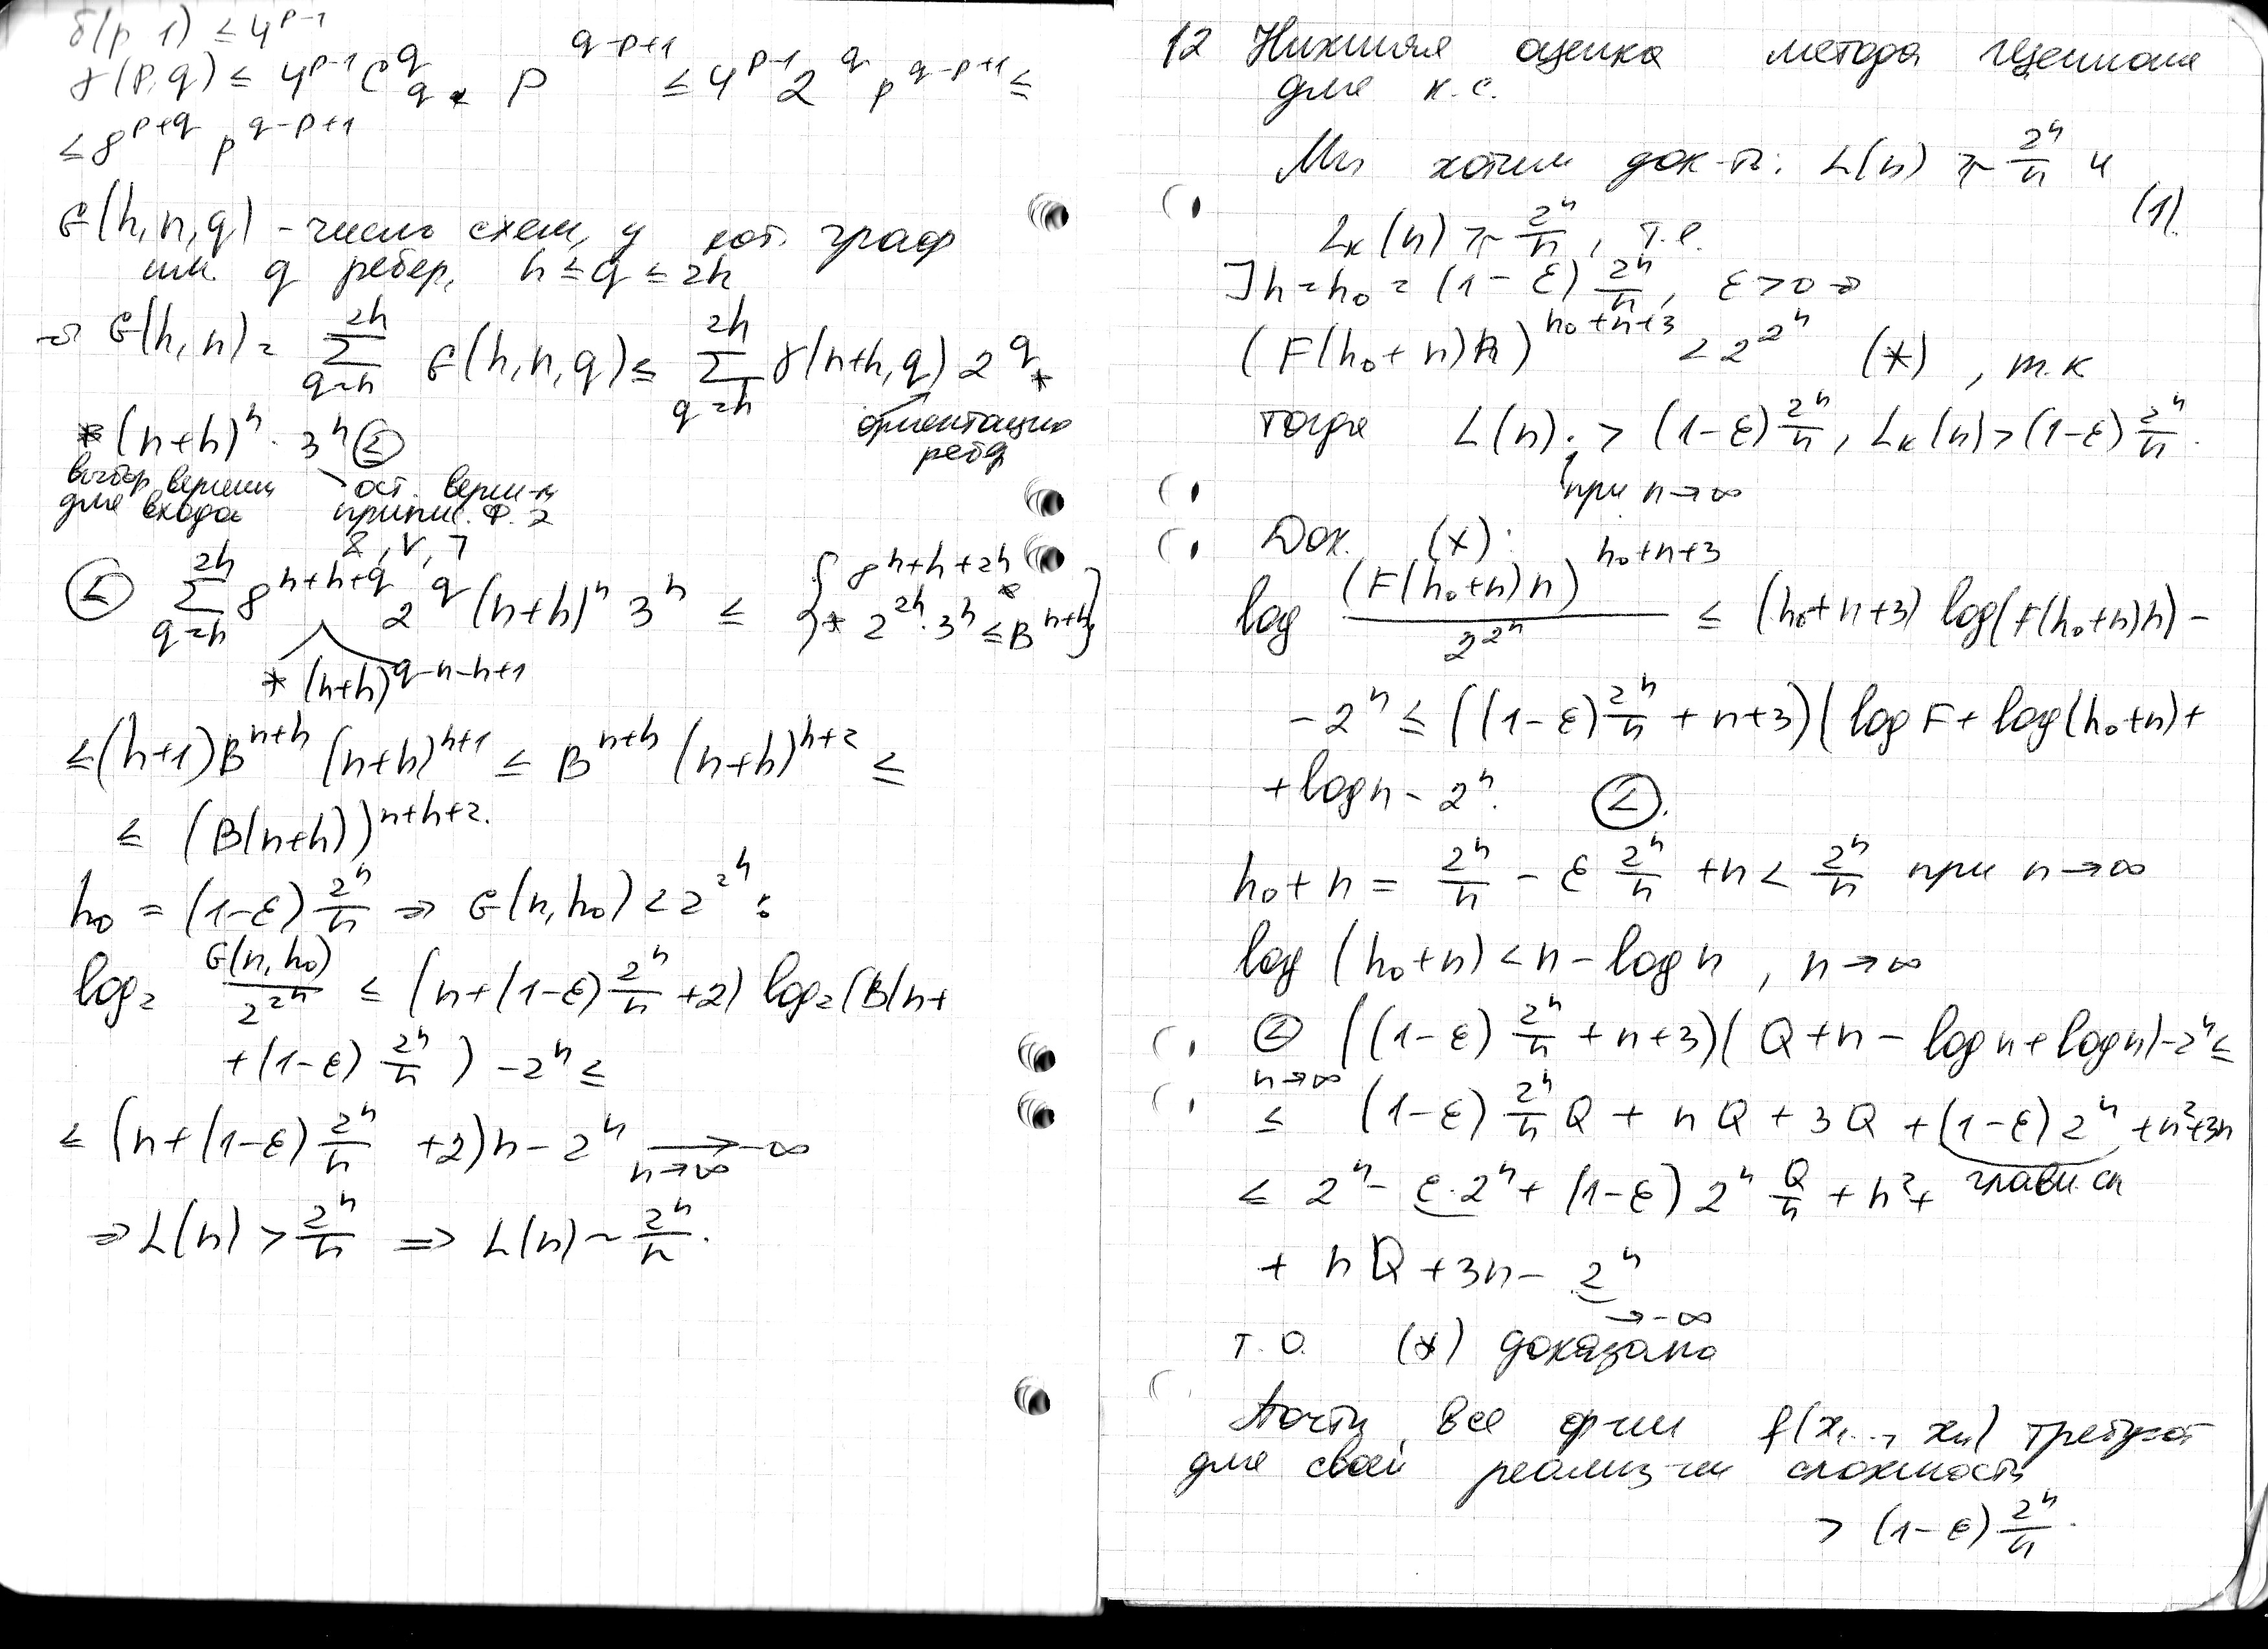 δ(p 1) ≤ 4^{p-1}
γ(p, q) ≤ 4^{p-1} C^q_q · p^{q-p+1} ≤ 4^{p-1} 2^q p^{q-p+1} ≤
≤ 8^{p+q} p^{q-p+1}
G(h, n, q) - число схем, у кот. граф
им. q ребер, h ≤ q ≤ 2h
⇒ G(h, n) = ∑_{q=h}^{2h} G(h, n, q) ≤ ∑_{q=h}^{2h} γ(n+h, q) 2^q *
ориентацию
ребер
* (n+h)^n · 3^h ≤
выбор вершин
для входа
ост. верш-м
припис. ф. э
&, ∨, ¬
≤ ∑_{q=h}^{2h} 8^{n+h+q} 2^q (n+h)^n 3^h ≤ { 8^{n+h+2h} *
* 2^{2h} · 3^h ≤ B^{n+h} }
* (n+h)^{q-n-h+1}
≤ (h+1) B^{n+h} (n+h)^{h+1} ≤ B^{n+h} (n+h)^{h+2} ≤
≤ (B(n+h))^{n+h+2}.
h_0 = (1-ε) 2^n/n ⇒ G(n, h_0) < 2^{2^n} :
log_2 G(n, h_0)/2^{2^n} ≤ (n + (1-ε) 2^n/n + 2) log_2 (B(n+
+ (1-ε) 2^n/n ) - 2^n ≤
≤ (n + (1-ε) 2^n/n + 2) n - 2^n →_{n→∞} -∞
⇒ L(n) > 2^n/n ⇒ L(n) ~ 2^n/n.
12 Нижняя оценка метода Шеннона
для к.с.
Мы хотим док-ть: L(n) ≳ 2^n/n и
(1).
L_к(n) ≳ 2^n/n, т.е.
] h = h_0 = (1-ε) 2^n/n, ε > 0 ⇒
(F(h_0+n)n)^{h_0+n+3} < 2^{2^n} (*), т.к
тогда L(n) > (1-ε) 2^n/n, L_к(n) > (1-ε) 2^n/n.
при n→∞
Док. (*):
log (F(h_0+n)n)^{h_0+n+3}/2^{2^n} ≤ (h_0+n+3) log(F(h_0+n)n) -
- 2^n ≤ ((1-ε) 2^n/n + n+3)(log F + log(h_0+n) +
+ log n - 2^n. ≤.
h_0 + n = 2^n/n - ε 2^n/n + n < 2^n/n при n→∞
log (h_0+n) < n - log n, n→∞
≤_{n→∞} ((1-ε) 2^n/n + n+3)(Q + n - log n + log n) - 2^n ≤
≤ (1-ε) 2^n/n Q + nQ + 3Q + (1-ε) 2^n + n^2+3n
≤ 2^n - ε·2^n + (1-ε) 2^n Q/n + n^2 +
+ nQ + 3n - 2^n
→ -∞
т.о. (*) доказано
Почти все ф-ции f(x_1..., x_n) требуют
для своей реализ-ии сложность
> (1-ε) 2^n/n.